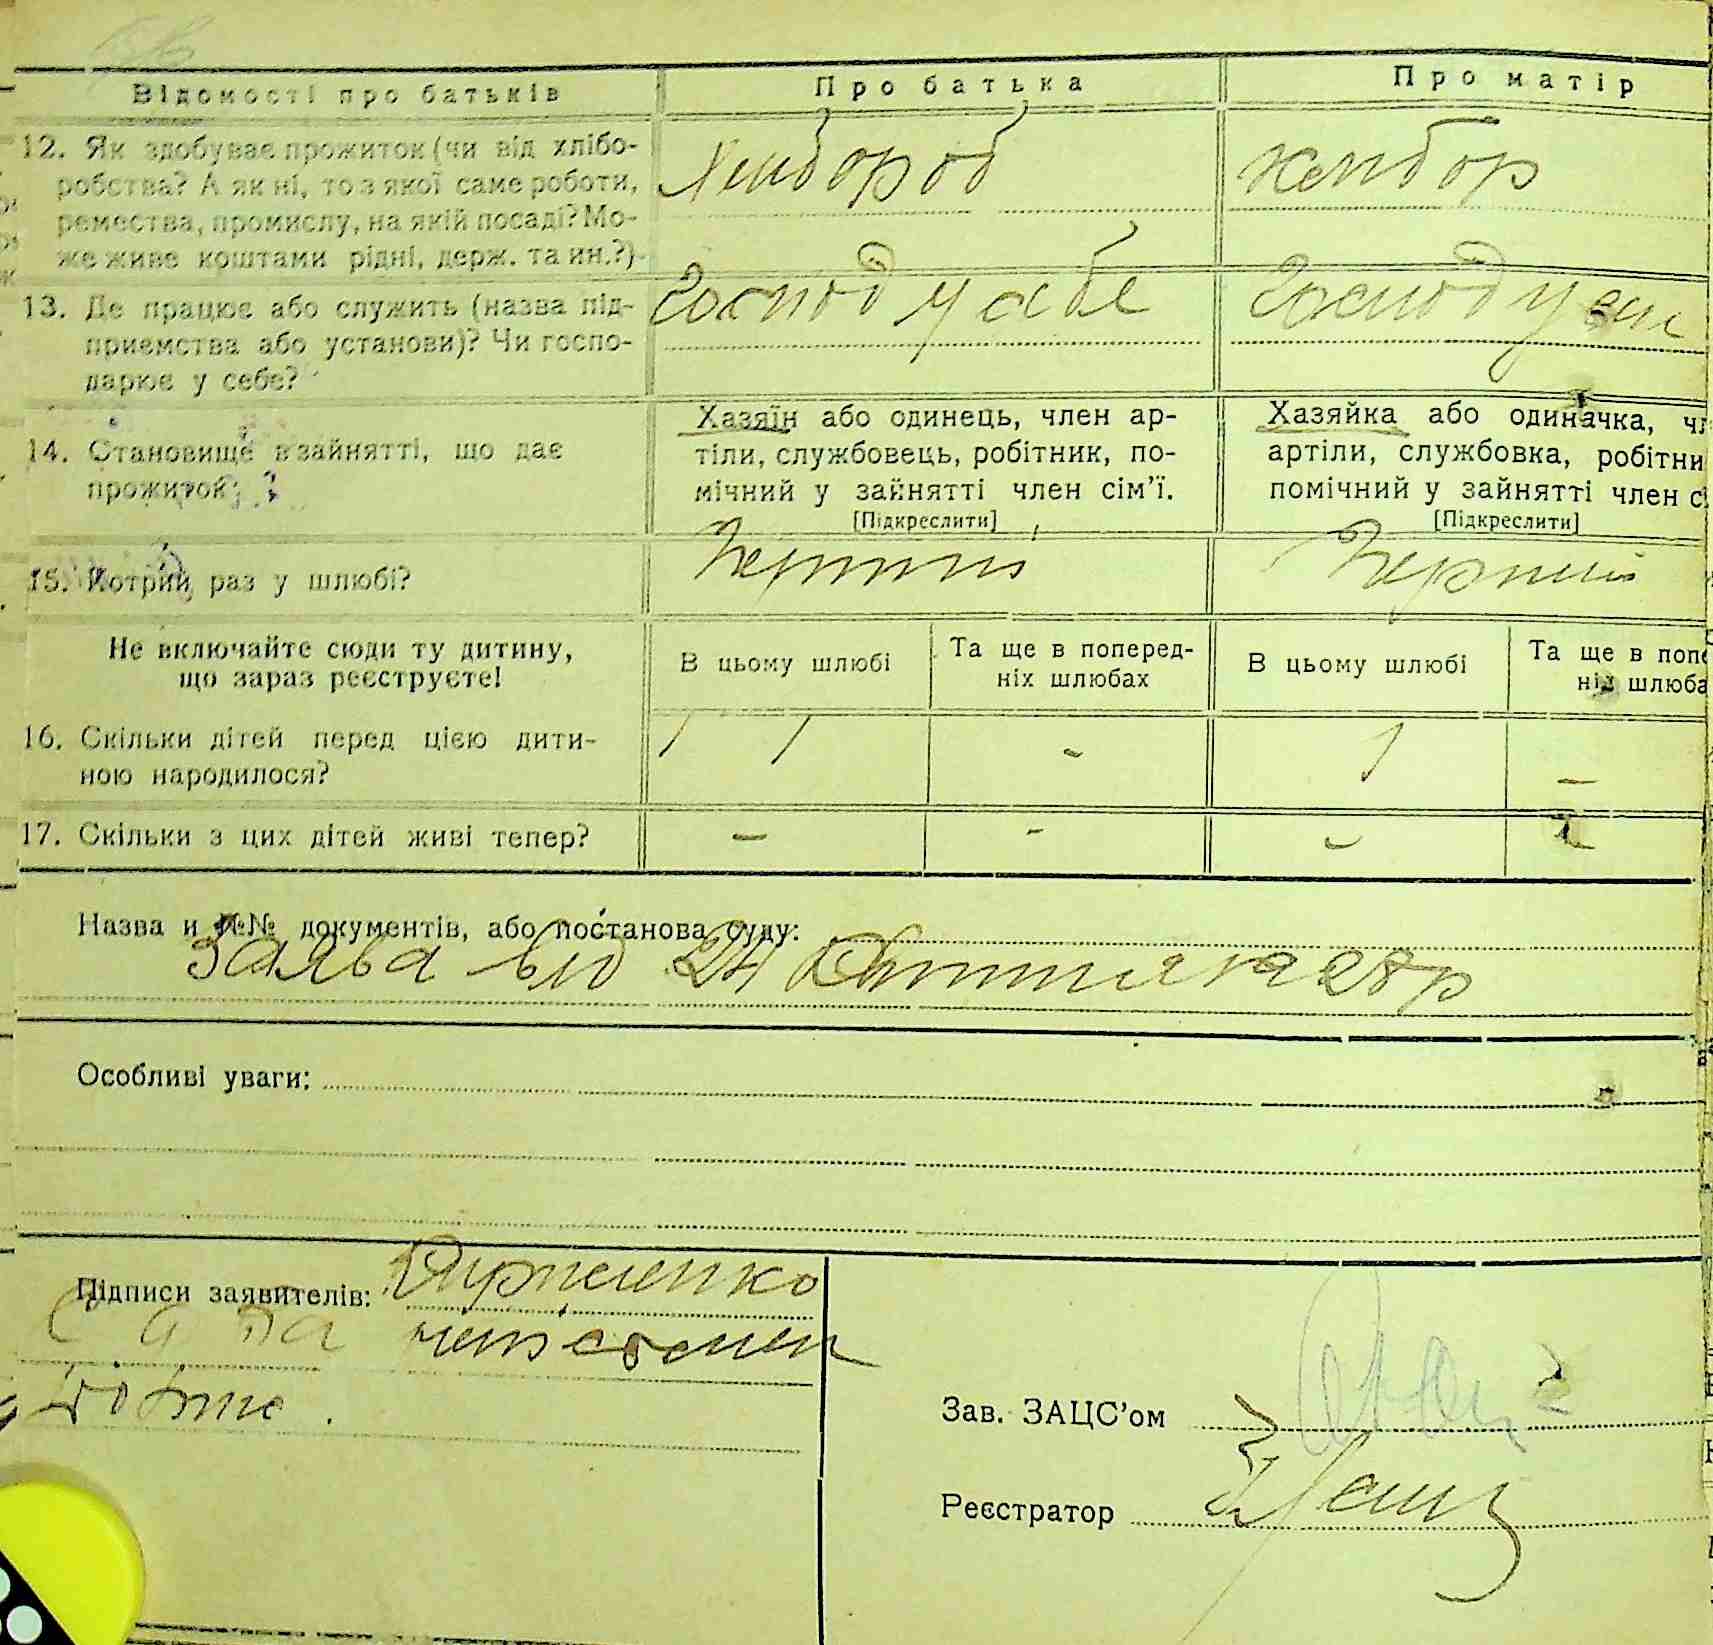 Відомості про батьків
Про батька
Про матір
12. Як здобуває прожиток (чи від хлібо-
робства? А як ні, то з якої саме роботи,
ремества, промислу, на якій посаді? Мо-
же живе коштами рідні, держ. та ин.?)
Хлибороб
хлибор
13. Де працює або служить (назва під-
приємства або установи)? Чи госпо-
дарює у себе?
Господ у себе
Господ у
14. Становище в зайнятті, що дає
прожиток:
Хазяїн або одинець, член ар-
тіли, службовець, робітник, по-
мічний у зайнятті член сім'ї.
[Підкреслити]
Хазяйка або одиначка, чл
артіли, службовка, робітни
помічний у зайнятті член сі
[Підкреслити]
15. Котрий раз у шлюбі?
Перший
Перший
Не включайте сюди ту дитину,
що зараз реєструєте!
В цьому шлюбі
Та ще в поперед-
ніх шлюбах
В цьому шлюбі
Та ще в попе
ніх шлюба
16. Скільки дітей перед цією дити-
ною народилося?
1 1 - 1 -
17. Скільки з цих дітей живі тепер?
- - -
Назва и №№ документів, або постанова суду:
Заява від 24 28 р
Особливі уваги:
Підписи заявителів:
Зав. ЗАЦС'ом
Реєстратор